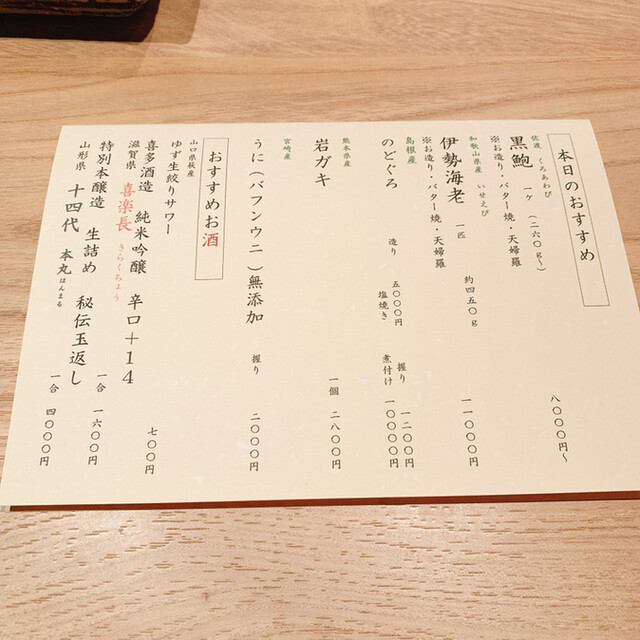 本日のおすすめ
佐渡 くろあわび
黒鮑 一ケ (二六〇g〜) 八〇〇〇円〜
※お造り・バター焼・天婦羅
和歌山県産 いせえび
伊勢海老 一匹 約四五〇g 一一〇〇〇円
※お造り・バター焼・天婦羅
島根県産
のどぐろ 造り 五〇〇〇円 握り 一二〇〇円
塩焼き 煮付け 一〇〇〇〇円
熊本県産
岩ガキ 一個 二八〇〇円
宮崎産
うに(バフンウニ)無添加 握り 二〇〇〇円
おすすめお酒
山口県萩産
ゆず生絞りサワー 七〇〇円
喜多酒造 純米吟醸 辛口+14
滋賀県 喜楽長 きらくちょう 一合 一六〇〇円
特別本醸造 生詰め 秘伝玉返し
山形県 十四代 本丸 ほんまる 一合 四〇〇〇円